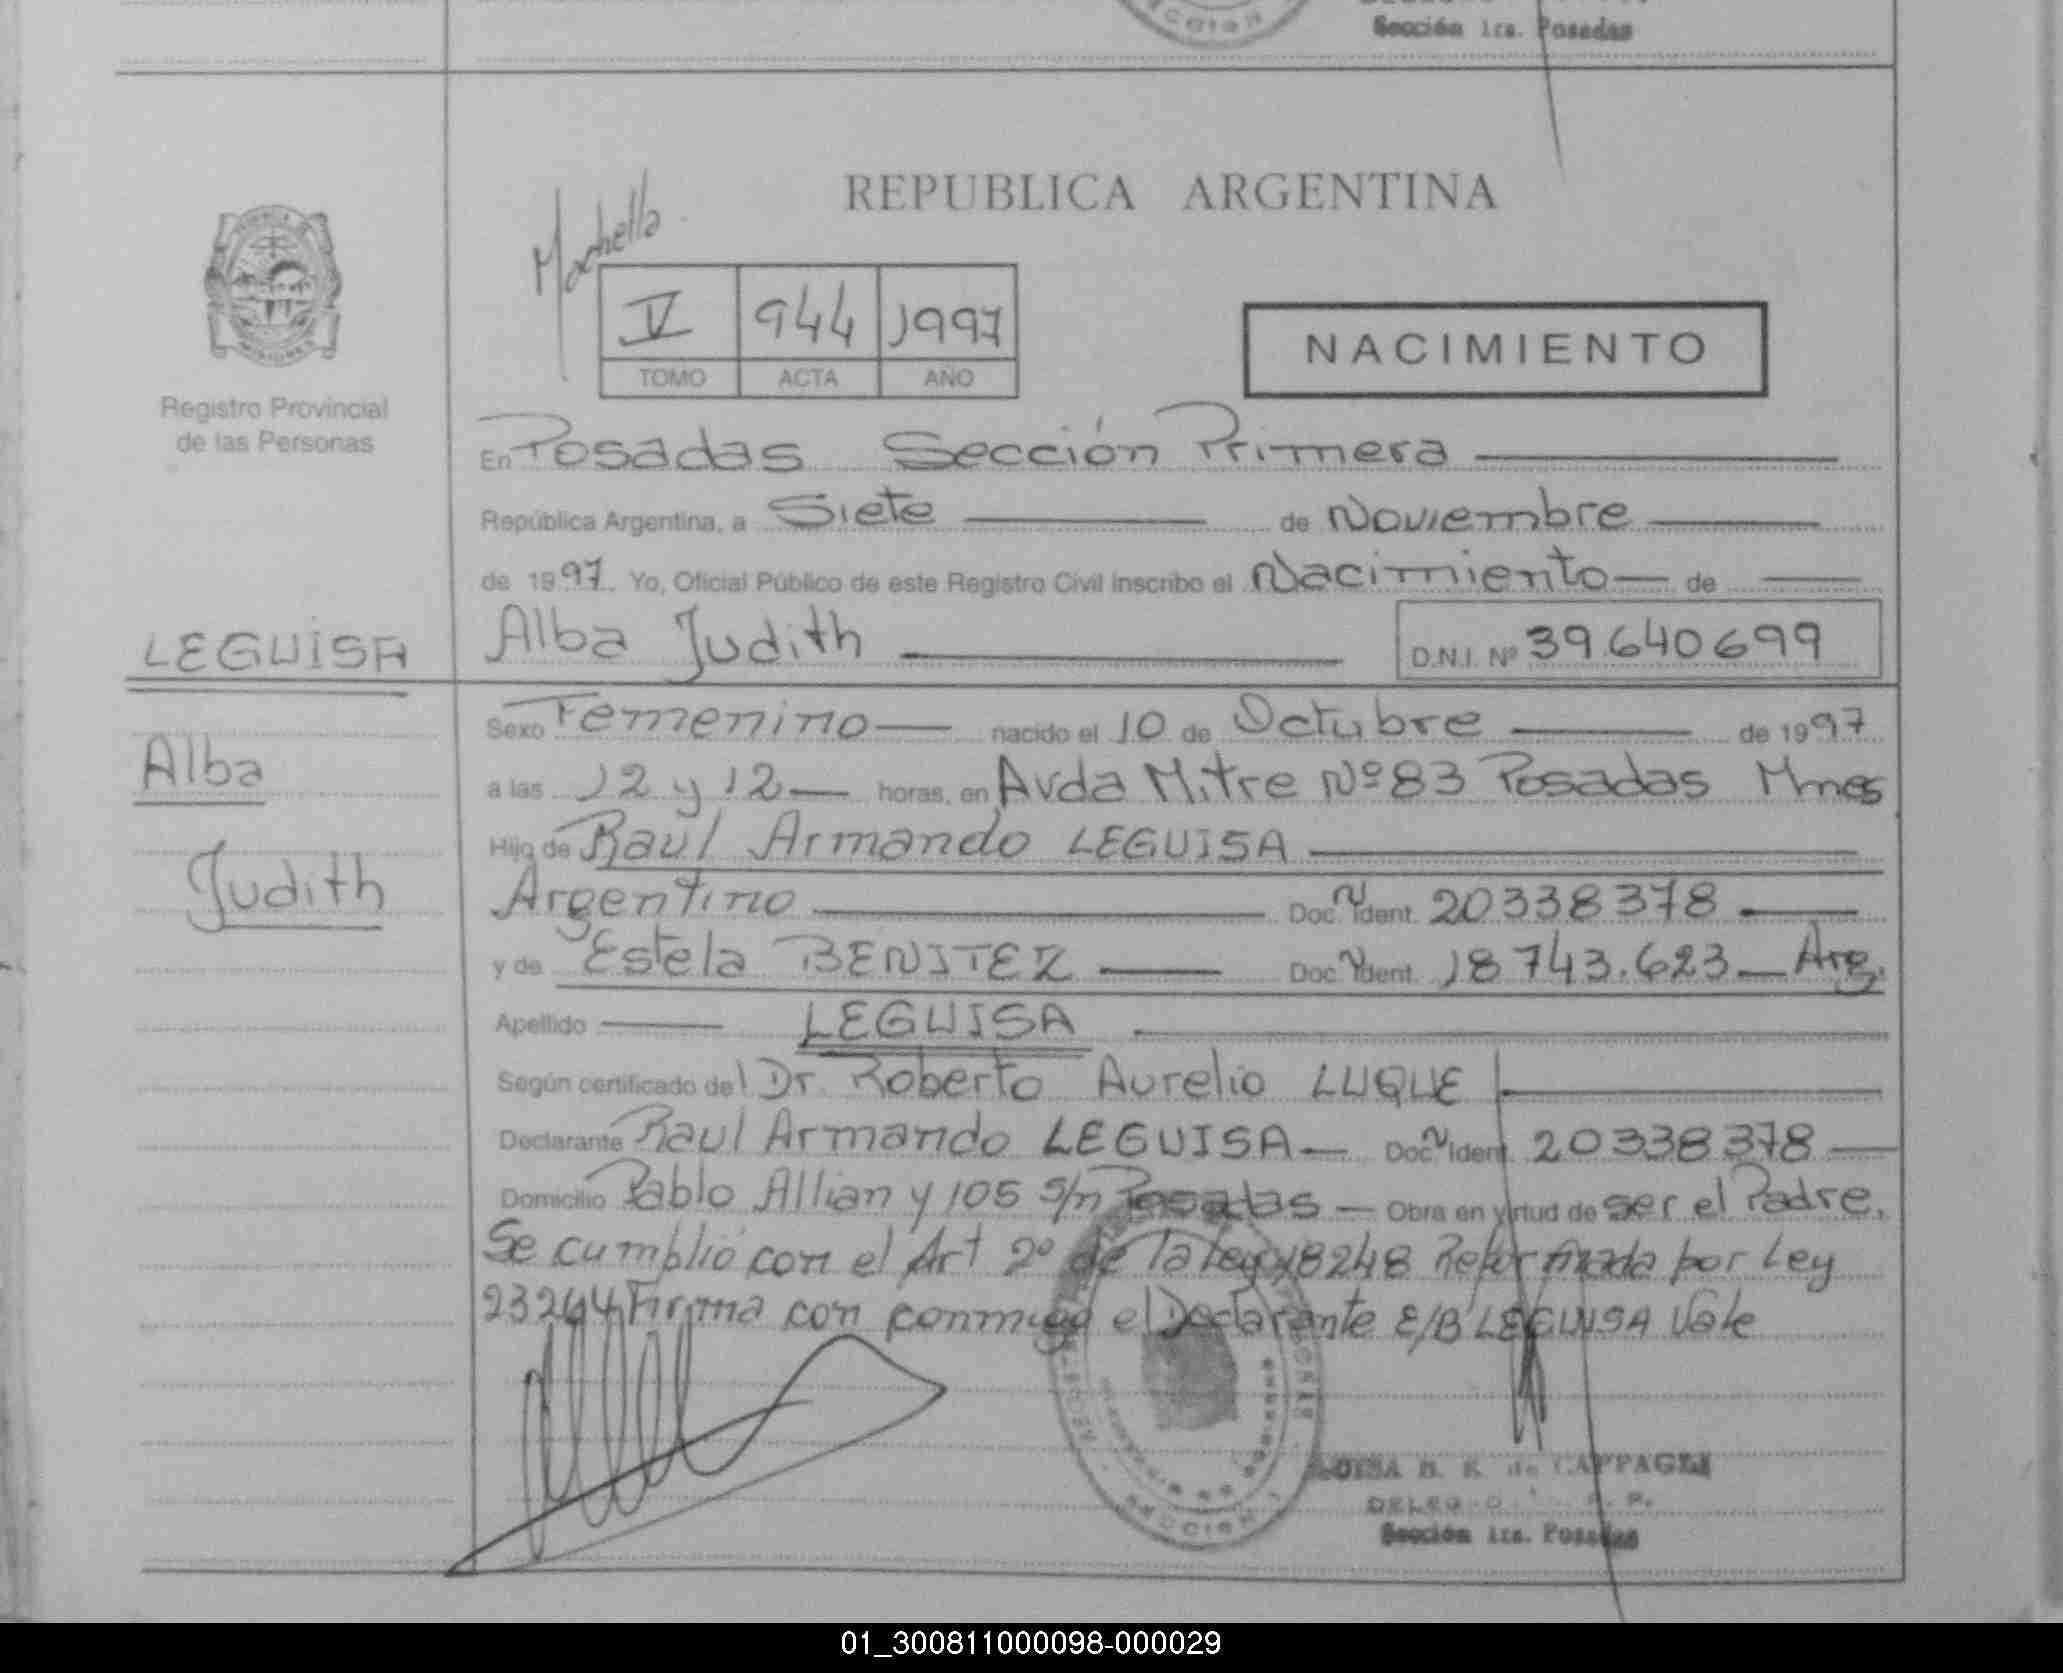 Sección 1ra. Posadas
REPUBLICA ARGENTINA
V 944 1997
TOMO ACTA AÑO
NACIMIENTO
Registro Provincial
de las Personas
En Posadas Sección Primera
República Argentina, a Siete de Noviembre
de 1997 Yo, Oficial Público de este Registro Civil inscribo el Nacimiento de
LEGUISA Alba Judith D.N.I. Nº 39.640699
Sexo Femenino nacido el 10 de Octubre de 1997
Alba
a las 12 y 12 horas, en Avda Mitre Nº 83 Posadas Mnes
Hijo de Raul Armando LEGUISA
Judith
Argentino Doc. Ident. 20338378
y de Estela BENITEZ Doc. Ident. 18743.623 Arg.
Apellido LEGUISA
Según certificado del Dr. Roberto Aurelio LUQUE
Declarante Raul Armando LEGUISA Doc. Ident. 20338378
Domicilio Pablo Allian y 105 s/n Posadas Obra en virtud de ser el Padre.
Se cumplió con el Art 2º de la Ley 18248 Reformada por Ley
23264 Firma con conmigo el Declarante E/B LEGUISA Vale
de CAPPAGLI
Sección 1ra. Posadas
01_300811000098-000029